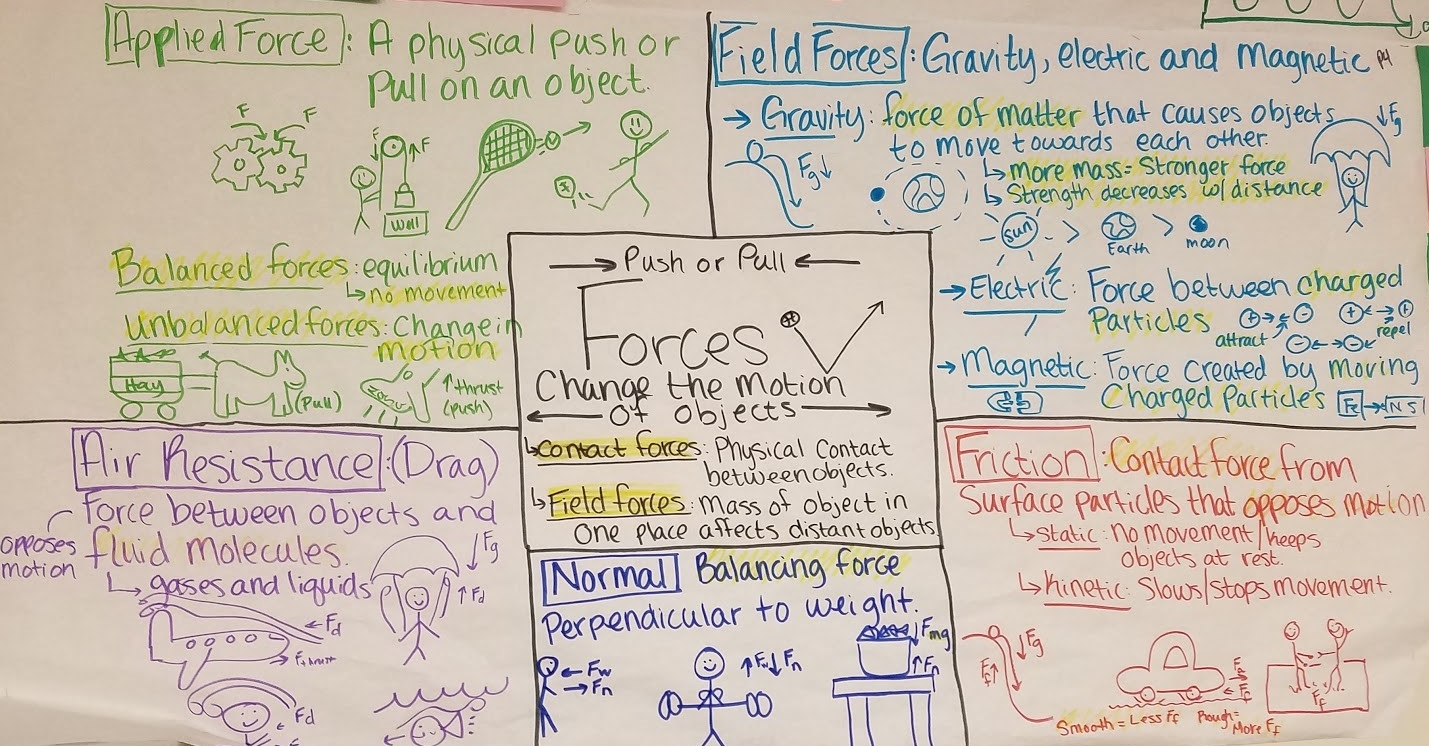 Applied Force: A physical push or
Pull on an object.
F F
F F
Wall
Balanced forces: equilibrium
↳ no movement
Unbalanced forces: Change in
motion
Hay
(Pull)
↑thrust
(push)
Field Forces: Gravity, electric and Magnetic
→ Gravity: force of matter that causes objects
to move towards each other.
↳ more mass = Stronger force
↳ Strength decreases w/ distance
Fg↓
↓Fg
Sun > Earth > moon
→ Electric: Force between charged
Particles
+ → ← - attract
+ ← → + repel
- ← → -
→ Magnetic: Force created by moving
Charged Particles
Fe → N S
→ Push or Pull ←
Forces
Change the Motion
← Of Objects →
↳ Contact forces: Physical Contact
between objects.
↳ Field forces: Mass of object in
One place affects distant objects
Air Resistance: (Drag)
Force between objects and
fluid molecules.
opposes
motion
↳ gases and liquids
↓Fg
↑Fd
←Fd
Fthrust
Fd
Normal Balancing force
Perpendicular to weight.
←Fw
→Fn
↑Fw↓Fn
↓Fmg
↑Fn
Friction: Contact force from
Surface particles that opposes motion
↳ Static: no movement/keeps
objects at rest.
↳ Kinetic: Slows/Stops movement.
Ff↑
↓Fg
Ff
Smooth = Less Ff Rough = More Ff